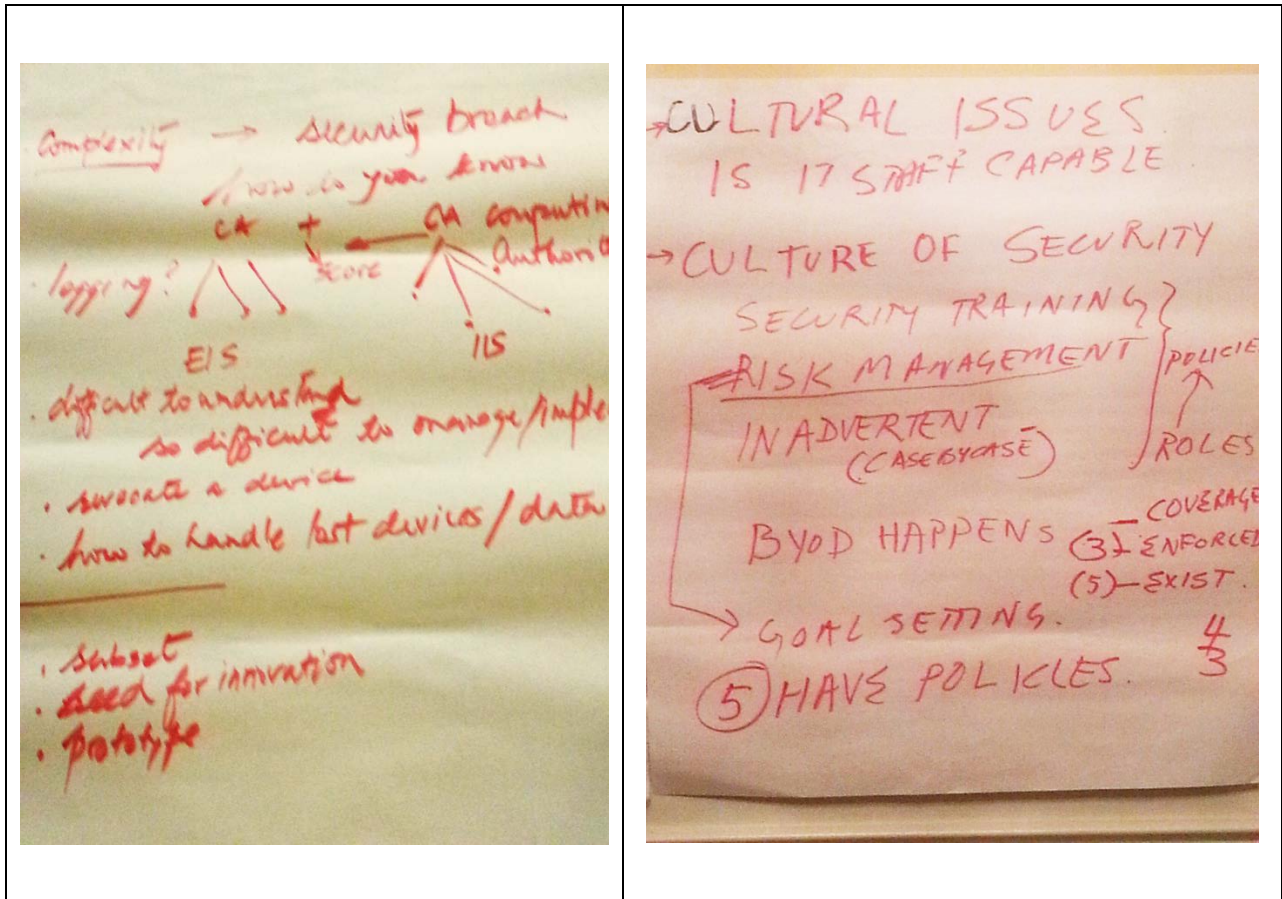 Complexity → security breach
how do you know
CA + CA computin
Authori
logging? score
EIS IIS
. difficult to understand
so difficult to manage/imple
. revocate a device
. how to handle lost devices/data
. subset
. need for innovation
. prototype
→CULTURAL ISSUES
IS IT STAFF CAPABLE
→CULTURE OF SECURITY
SECURITY TRAINING
RISK MANAGEMENT
POLICIE
INADVERTENT
(CASE BY CASE)
ROLES
BYOD HAPPENS
— COVERAGE
(3) – ENFORCED
(5) – EXIST.
GOAL SETTING.
4
3
5 HAVE POLICIES.